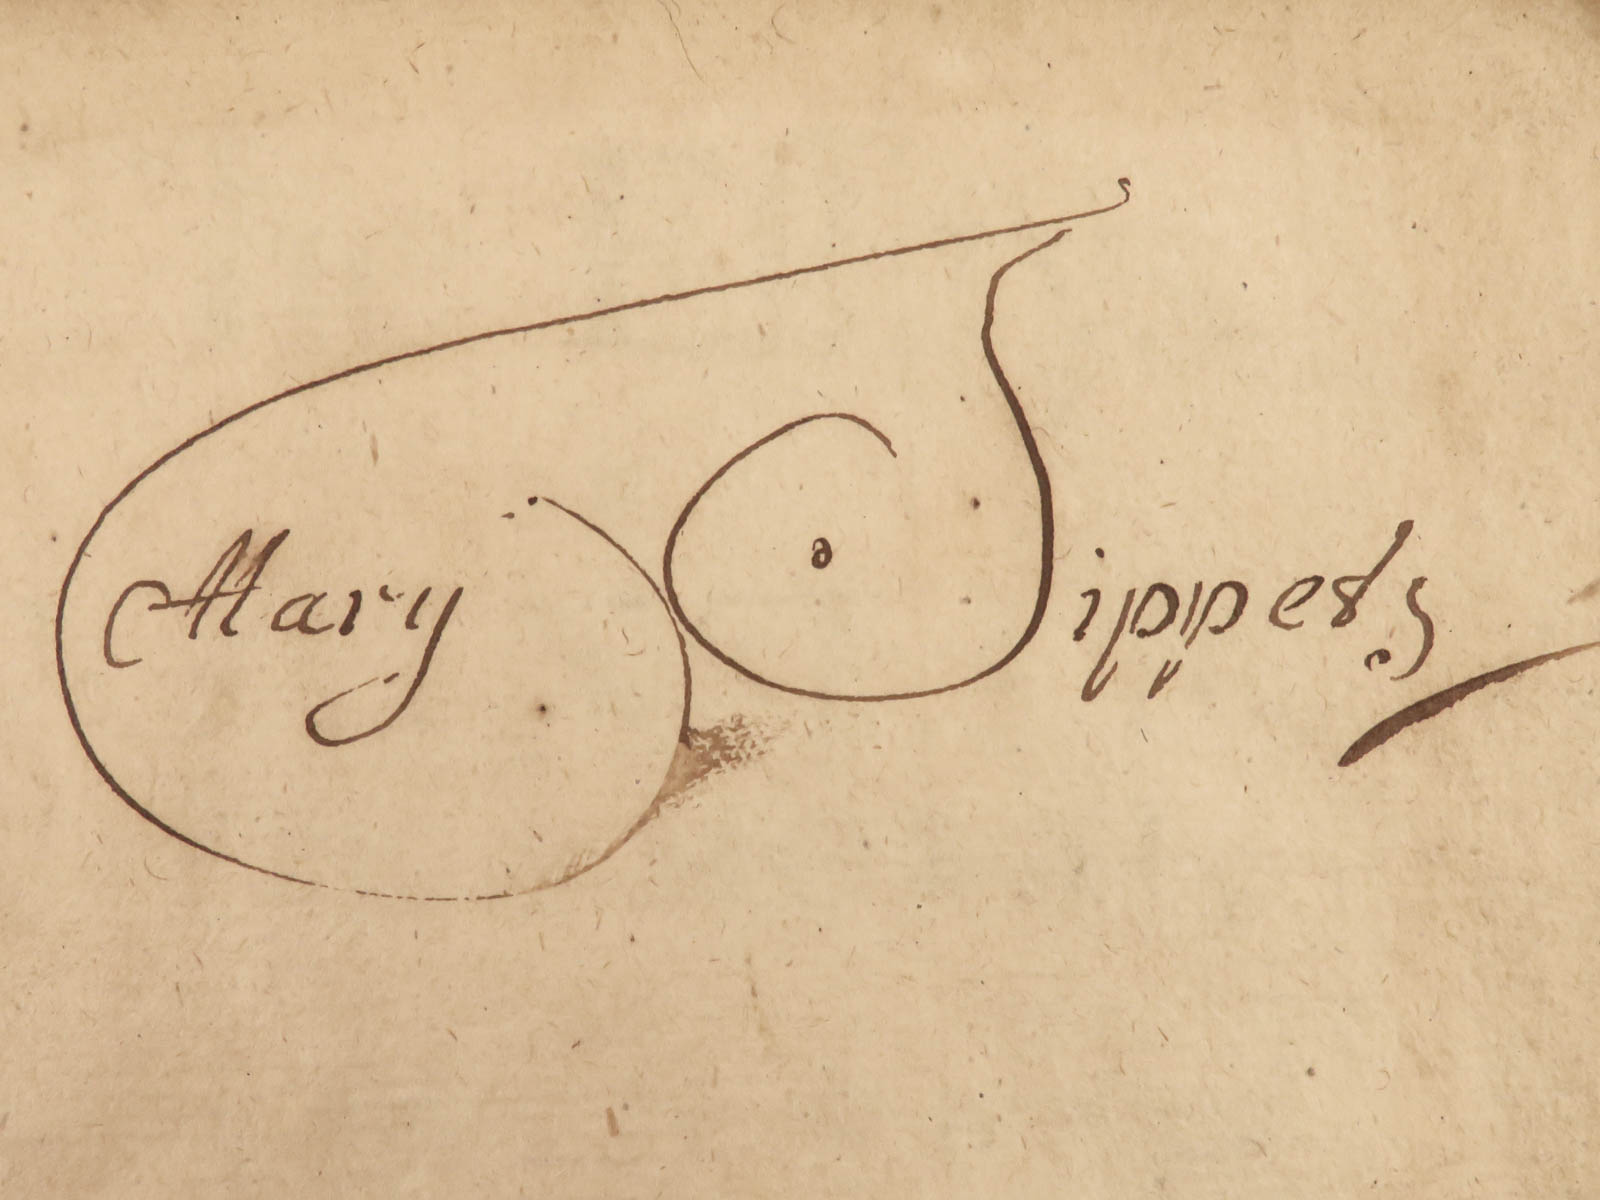 Mary Tippets